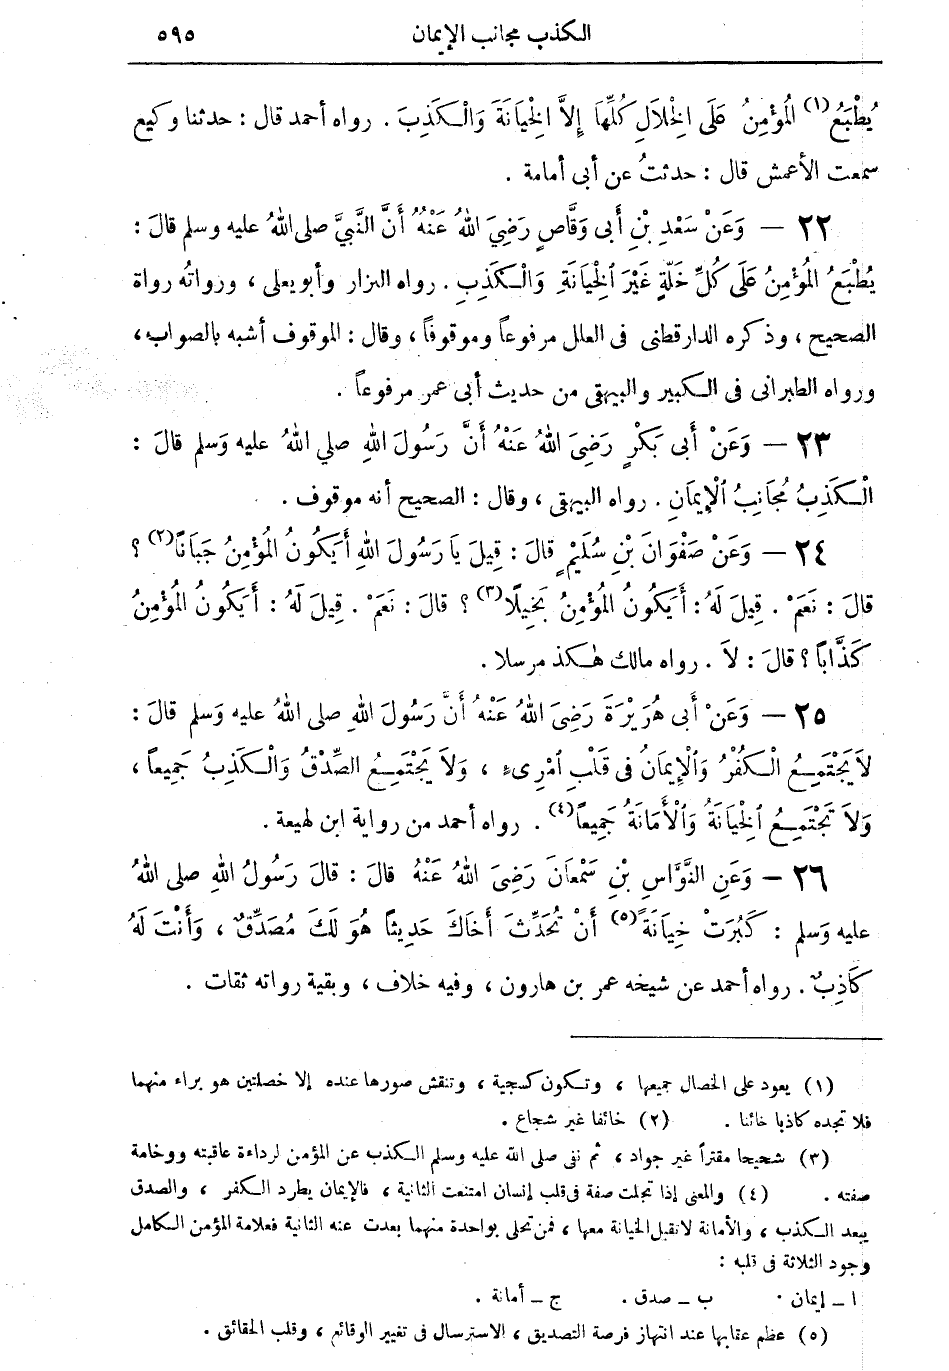 الكذب مجانب الإيمان ٥٩٥
يُطْبَعُ(١) الْمُؤْمِنُ عَلَى الْخِلَالِ كُلِّهَا إِلاَّ الْخِيَانَةَ وَالْكَذِبَ . رواه أحمد قال : حدثنا وكيع
سمعت الأعمش قال : حدثتُ عن أبى أمامة .
٢٢ — وَعَنْ سَعْدِ بْنِ أَبى وَقَّاصٍ رَضِيَ اللهُ عَنْهُ أَنَّ النَّبِيَّ صلى اللهُ عليه وسلم قالَ :
يُطْبَعُ الْمُؤْمِنُ عَلَى كُلِّ خَلَّةٍ غَيْرَ الْخِيَانَةِ وَالْكَذِبِ . رواه البزار وأبو يعلى ، ورواتُه رواة
الصحيح ، وذكره الدارقطنى فى العلل مرفوعاً وموقوفاً ، وقال : الموقوف أشبه بالصواب ،
ورواه الطبرانى فى الكبير والبيهقى من حديث أبى عمر مرفوعاً .
٢٣ — وَعَنْ أَبى بَكْرٍ رَضِىَ اللهُ عَنْهُ أَنَّ رَسُولَ اللهِ صلي اللهُ عليه وَسلم قالَ :
الْكَذِبُ مُجَانِبُ الْإِيمَانِ . رواه البيهقى ، وقال : الصحيح أنه موقوف .
٢٤ — وَعَنْ صَفْوَانَ بْنِ سُلَيْمٍ قالَ : قِيلَ يَا رَسُولَ اللهِ أَيَكُونُ الْمُؤْمِنُ جَبَانًا(٢) ؟
قالَ : نَعَمْ . قِيلَ لَهُ : أَيَكُونُ الْمُؤْمِنُ بَخِيلًا(٣) ؟ قالَ : نَعَمْ . قِيلَ لَهُ : أَيَكُونُ الْمُؤْمِنُ
كَذَّاباً ؟ قالَ : لاَ . رواه مالك هكذ مرسلا .
٢٥ — وَعَنْ أَبى هُرَيْرَةَ رَضِىَ اللهُ عَنْهُ أَنَّ رَسُولَ اللهِ صلى اللهُ عليه وَسلم قالَ :
لاَ يَجْتَمِعُ الْكُفْرُ وَالْإِيمَانُ فى قَلْبِ امْرِىءٍ ، وَلاَ يَجْتَمِعُ الصِّدْقُ وَالْكَذِبُ جَمِيعاً ،
وَلاَ تَجْتَمِعُ الْخِيَانَةُ وَالْأَمَانَةُ جَمِيعاً(٤) . رواه أحمد من رواية ابن لهيعة .
٢٦ — وَعَنِ النَّوَّاسِ بْنِ سَمْعَانَ رَضِىَ اللهُ عَنْهُ قالَ : قالَ رَسُولُ اللهِ صلى اللهُ
عليه وَسلم : كَبُرَتْ خِيَانَةً(٥) أَنْ تُحَدِّثَ أَخَاكَ حَدِيثاً هُوَ لَكَ مُصَدِّقٌ ، وَأَنْتَ لَهُ
كَاذِبٌ . رواه أحمد عن شيخه عمر بن هارون ، وفيه خلاف ، وبقية رواته ثقات .
(١) يعود على الخصال جميعها ، وتكون كسجية ، وتنقش صورها عنده إلا خصلتين هو براء منهما
فلا تجده كاذبا خائنا . (٢) خائفا غير شجاع .
(٣) شحيحا مقتراً غير جواد ، ثم نفى صلى الله عليه وسلم الكذب عن المؤمن لرداءة عاقبته ووخامة
صفته . (٤) والمعنى إذا تجلت صفة فى قلب إنسان امتنعت الثانية ، فالإيمان يطرد الكفر ، والصدق
يبعد الكذب ، والأمانة لا تقبل الخيانة معها ، فمن تحلى بواحدة منهما بعدت عنه الثانية فعلامة المؤمن الكامل
وجود الثلاثة فى قلبه :
ا ـ إيمان . ب ـ صدق . ج ـ أمانة .
(٥) عظم عقابها عند انتهاز فرصة التصديق ، الاسترسال فى تغيير الوقائع ، وقلب الحقائق .